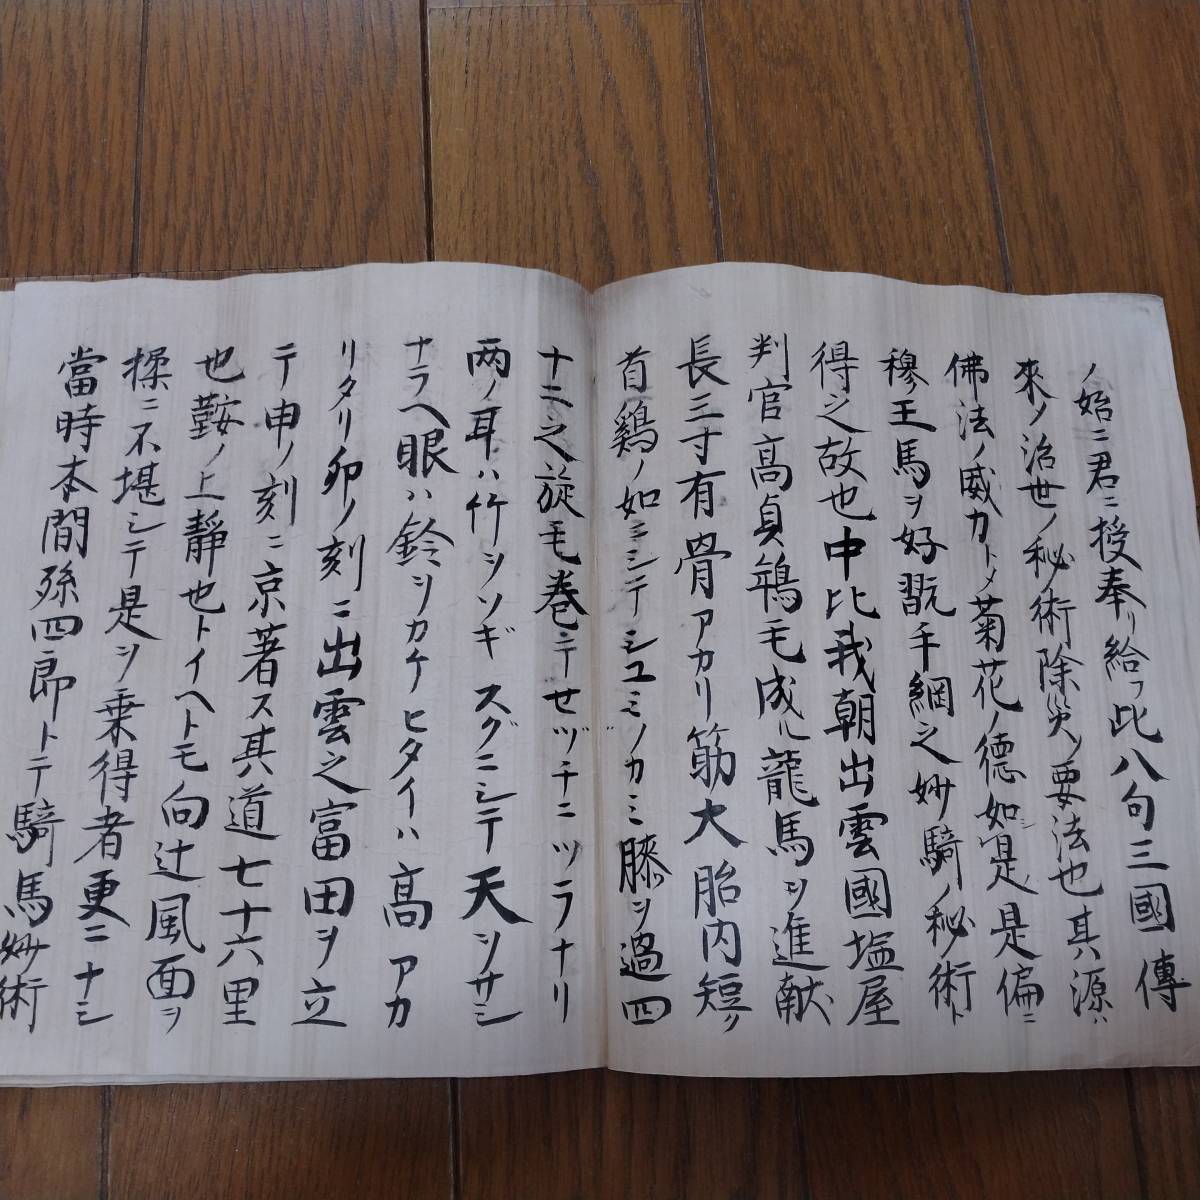 ノ始ニ君ニ授奉リ給フ此八句三國傳
來ノ治世ノ秘術除災ノ要法也其源ハ
佛法ノ威力トメ菊花ノ德如是是偏ニ
穆王馬ヲ好翫手綱之妙騎ノ秘術ト
得之故也中比我朝出雲國塩屋
判官高貞鴾毛成ル龍馬ヲ進献
長三寸有骨アカリ筋大胎内短ク
首鷄ノ如ニシテシユミノカミ膝ヲ過四
十二之旋毛巻ニテせヅチニツラナリ
両ノ耳ハ竹ヲソギスグニシテ天ヲサシ
ナラヘ眼ハ鈴ヲカケヒタイハ高アカ
リタリ卯ノ刻ニ出雲之富田ヲ立
テ申ノ刻ニ京著ス其道七十六里
也鞍ノ上靜也トイヘトモ向辻風面ヲ
揉ニ不堪シテ是ヲ乗得者更ニナシ
當時本間孫四郎トテ騎馬妙術